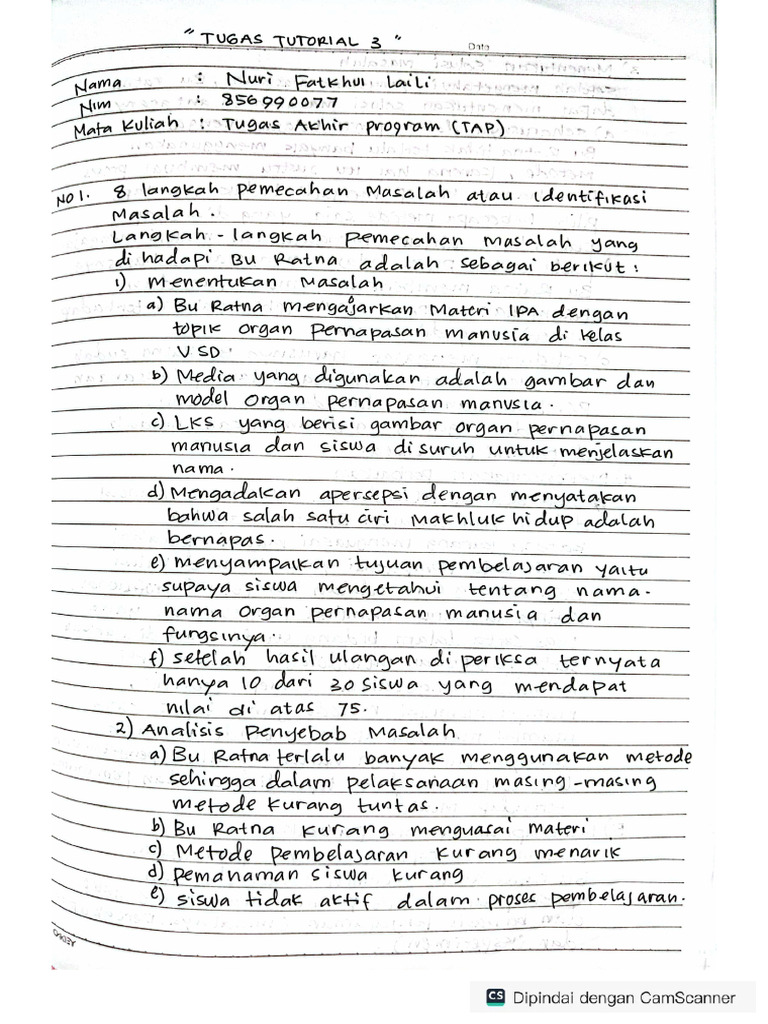 " TUGAS TUTORIAL 3 "
Date
Nama : Nuri Fatkhul Laili
Nim : 856990077
Mata Kuliah : Tugas Akhir program (TAP)
NO 1. 8 langkah pemecahan Masalah atau identifikasi
Masalah.
Langkah - langkah pemecahan Masalah yang
di hadapi Bu Ratna adalah sebagai berikut :
1) menentukan Masalah
a) Bu Ratna mengajarkan Materi IPA dengan
topik organ pernapasan manusia di kelas
V SD.
b) Media yang digunakan adalah gambar dan
model organ pernapasan manusia.
c) LKS yang berisi gambar organ pernapasan
manusia dan siswa disuruh untuk menjelaskan
nama.
d) Mengadakan apersepsi dengan menyatakan
bahwa salah satu ciri makhluk hidup adalah
bernapas.
e) menyampaikan tujuan pembelajaran yaitu
supaya siswa mengetahui tentang nama-
nama organ pernapasan manusia dan
fungsinya.
f) setelah hasil ulangan di periksa ternyata
hanya 10 dari 30 siswa yang mendapat
nilai di atas 75.
2) Analisis Penyebab Masalah
a) Bu Ratna terlalu banyak menggunakan metode
sehingga dalam pelaksanaan masing-masing
metode kurang tuntas.
b) Bu Ratna kurang menguasai materi
c) Metode pembelajaran kurang menarik
d) pemanaman siswa kurang
e) siswa tidak aktif dalam proses pembelajaran.
CS Dipindai dengan CamScanner